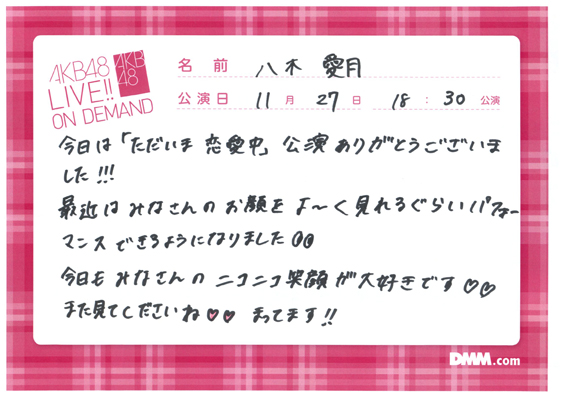 AKB48
LIVE!!
ON DEMAND
AKB
48
名前 八木 愛月
公演日 11月 27日 18:30 公演
今日は「ただいま 恋愛中」公演 ありがとうございま
した!!!
最近は みなさんの お顔を よ〜く見れるぐらい パフォー
マンス できるようになりました
今日も みなさんの ニコニコ笑顔が大好きです♡♡
また見てくださいね♡♡ まってます!!
DMM.com